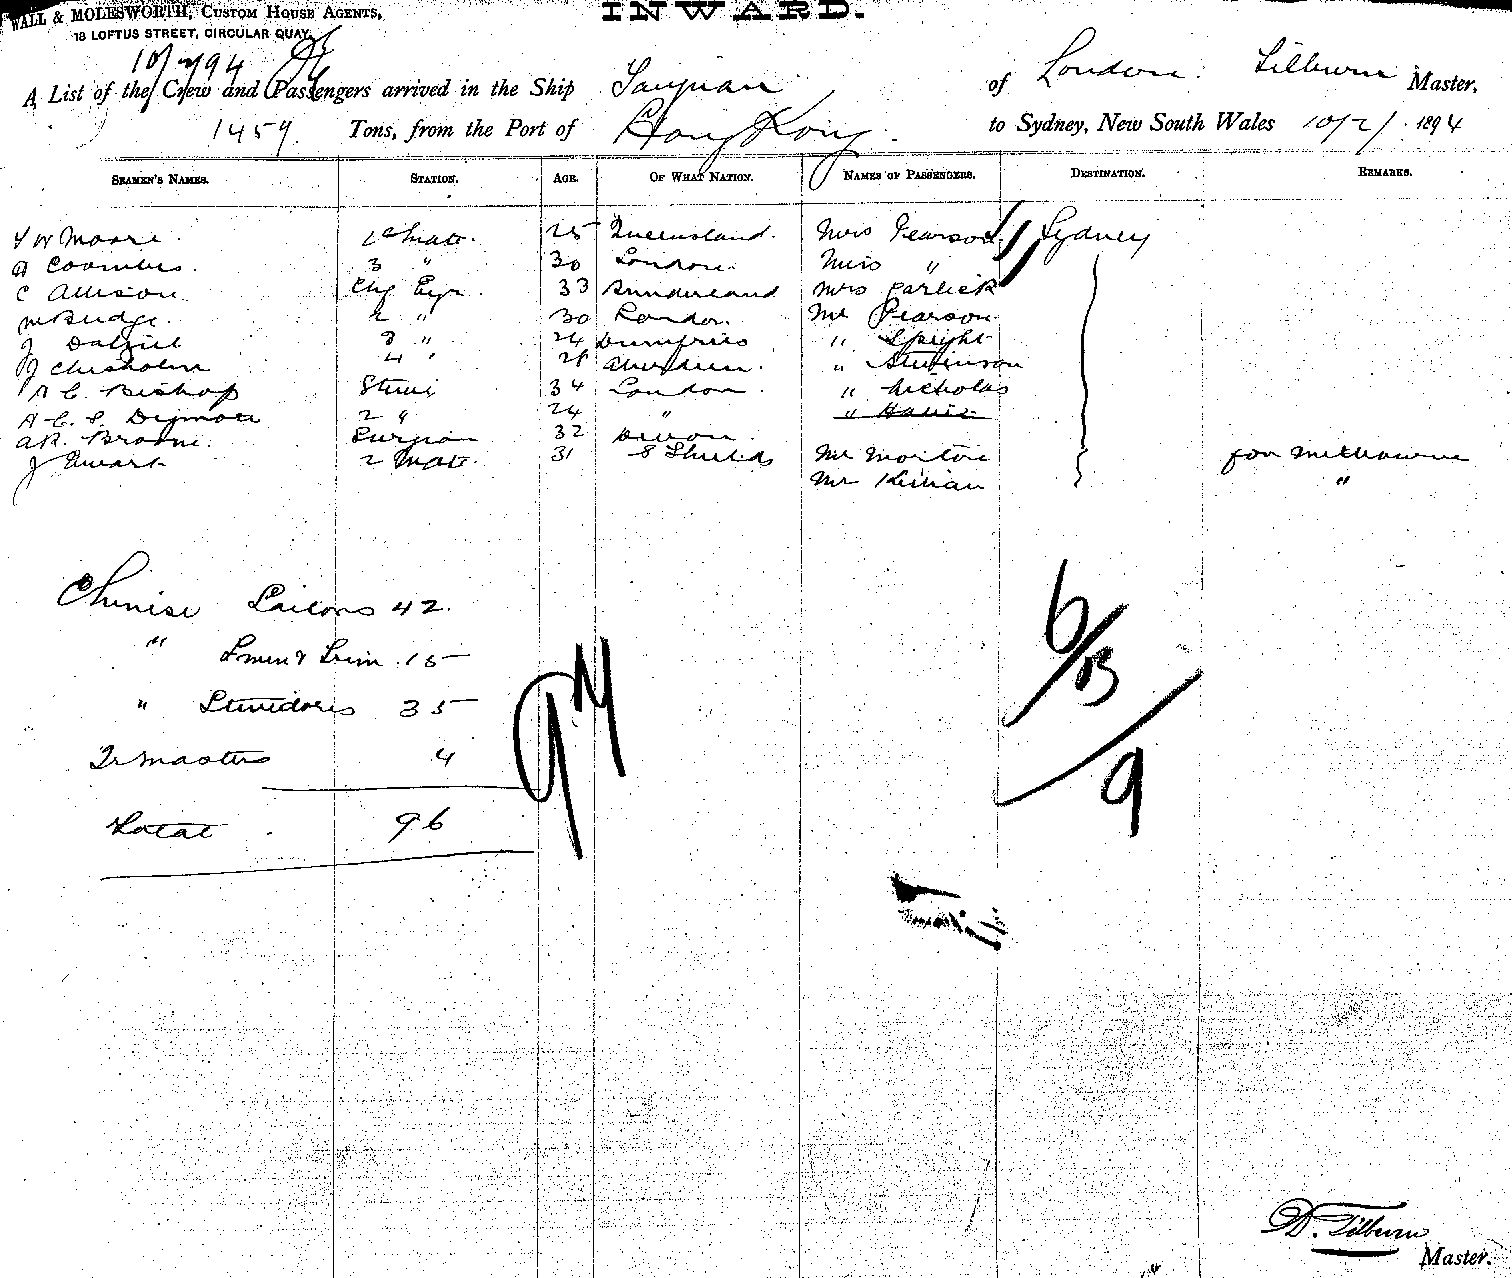 WALL & MOLESWORTH, CUSTOM HOUSE AGENTS,
18 LOFTUS STREET, CIRCULAR QUAY.
INWARD.
10/2/94
A List of the Crew and Passengers arrived in the Ship Taiyuan of London. Tilburn Master,
1459 Tons, from the Port of Hong Kong. to Sydney, New South Wales 10/2/ 1894
SEAMEN'S NAMES. STATION. AGE. OF WHAT NATION. NAMES OF PASSENGERS. DESTINATION. REMARKS.
Moore. 1st Mate. 25 Queensland. Mrs Pearson Sydney
A Coombes. 3 " 30 London. Miss "
C Allison Chf Engr. 33 Sunderland Mrs Garlick
Budge. 2 " 30 London. Mr Pearson
J Dalziel 3 " 24 Dumfries " Speight
J Chisholm 4 " Aberdeen. " Stevenson
A C. Bishop Stewd 34 London " Nicholas
A. C. S. Dymott 2 " 24 "
A.R. Broome. Surgeon 32 Devon.
J Ewart 2 Mate. 31 S Shields Mr Morton for Melbourne
Mr Killian "
Chinese Sailors 42.
" Fmen & Trim. 15
" Stevedores 35
Qr Masters 4
Total 96
6/13
9
D. Tilburn
Master.